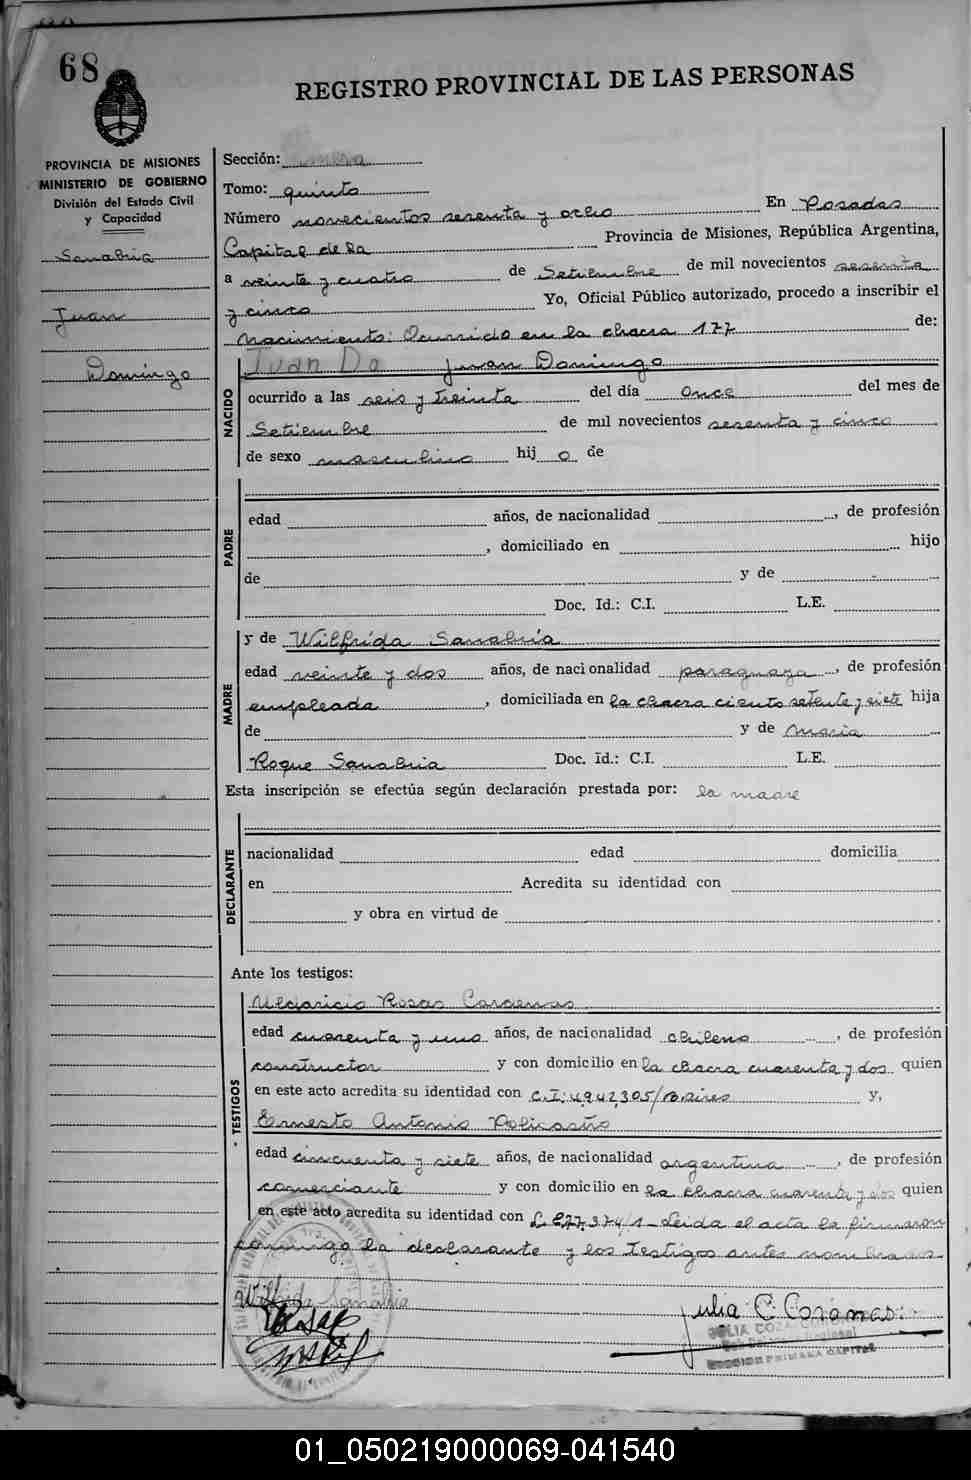 68
REGISTRO PROVINCIAL DE LAS PERSONAS
PROVINCIA DE MISIONES
MINISTERIO DE GOBIERNO
División del Estado Civil
y Capacidad
Sanabria
Juan
Domingo
Sección: Primera
Tomo: quinto
Número novecientos sesenta y ocho En Posadas
Capital de la Provincia de Misiones, República Argentina,
a veinte y cuatro de Setiembre de mil novecientos sesenta
y cinco Yo, Oficial Público autorizado, procedo a inscribir el
Nacimiento: Ocurrido en la chacra 177 de:
NACIDO
Juan Do Juan Domingo
ocurrido a las seis y treinta del día once del mes de
Setiembre de mil novecientos sesenta y cinco
de sexo masculino hij o de
PADRE
edad años, de nacionalidad , de profesión
, domiciliado en hijo
de y de
Doc. Id.: C.I. L.E.
MADRE
y de Wilfrida Sanabria
edad veinte y dos años, de nacionalidad paraguaya , de profesión
empleada , domiciliada en la chacra ciento setenta y siete hija
de y de Maria
Roque Sanabria Doc. Id.: C.I. L.E.
Esta inscripción se efectúa según declaración prestada por: la madre
DECLARANTE
nacionalidad edad domicilia
en Acredita su identidad con
y obra en virtud de
Ante los testigos:
TESTIGOS
Rosas Cardenas
edad cuarenta y uno años, de nacionalidad chileno , de profesión
constructor y con domicilio en la chacra cuarenta y dos quien
en este acto acredita su identidad con C.I: 4.942,305/B.aires y,
Ernesto Antonio
edad cincuenta y siete años, de nacionalidad argentina , de profesión
comerciante y con domicilio en la chacra cuarenta y dos quien
en este acto acredita su identidad con Leida el acta la firmaron
conmigo la declarante y los testigos antes nombrados.
Wilfrida Sanabria
Julia C. Coramas
SECCION PRIMERA CAPITAL
01_050219000069-041540